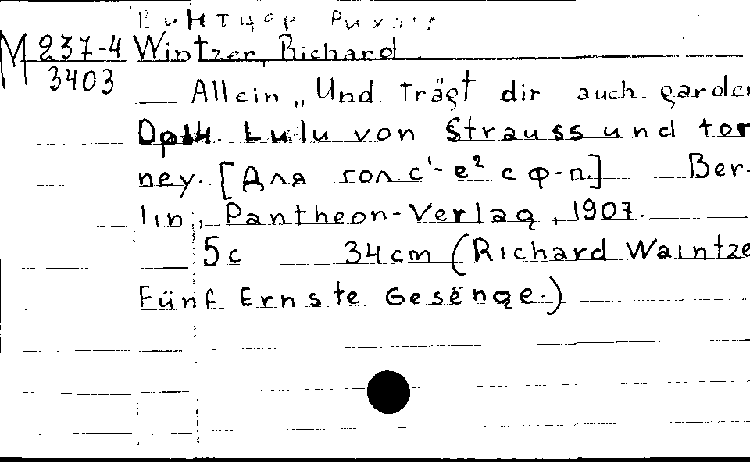 Винтцер Рихард
М 237-4 Wintzer, Richard
3403
Allein „Und trägt dir auch garden
Lulu von Strauss und tor
ney. [Для гол с¹-е² с ф-п.] Ber-
lin, Pantheon-Verlag, 1907.
5c 34cm (Richard Waintze
Fünf Ernste Gesënge.)